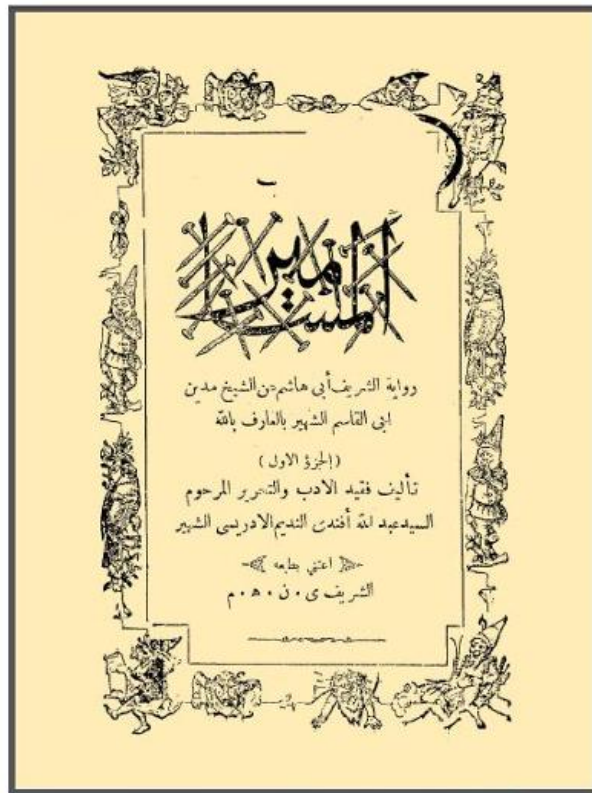 المسامير
رواية الشريف أبي هاشم عن الشيخ مدين
ابى القاسم الشهير بالعارف بالله
(الجزؤ الاول)
تأليف فقيد الادب والتحرير المرحوم
السيد عبد الله أفندى النديم الادريسى الشهير
اعتني بطبعه
الشريف ى ٠ ن ٠ ه ٠ م